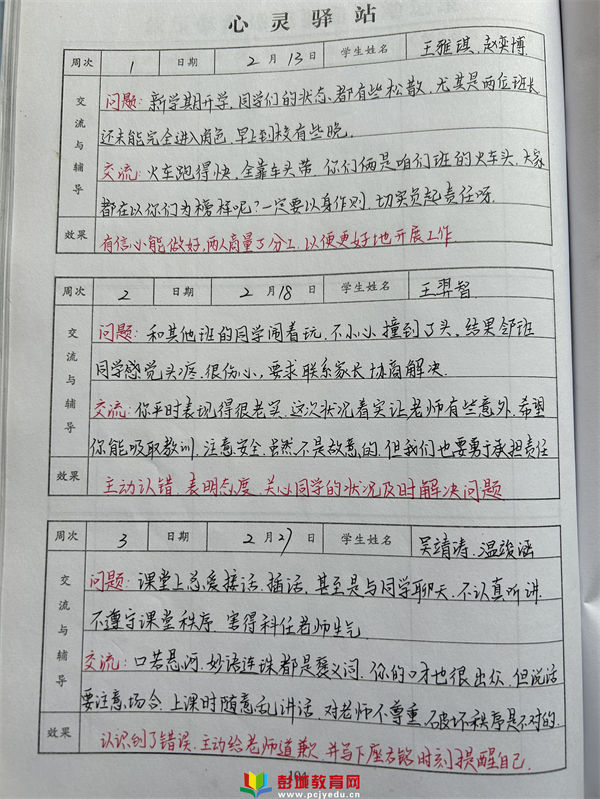 心灵驿站
周次 1 日期 2 月 13 日 学生姓名 王雅琪，赵奕博
交流与辅导
问题：新学期开学，同学们的状态都有些松散，尤其是两位班长
还未能完全进入角色，早上到校有些晚。
交流：火车跑得快，全靠车头带，你们俩是咱们班的火车头，大家
都在以你们为榜样呢？一定要以身作则，切实负起责任呀。
效果 有信心能做好，两人商量了分工，以便更好地开展工作
周次 2 日期 2 月 18 日 学生姓名 王羿智
交流与辅导
问题：和其他班的同学闹着玩，不小心撞到了头，结果邻班
同学感觉头疼，很伤心，要求联系家长协商解决。
交流：你平时表现得很老实，这次状况着实让老师有些意外，希望
你能吸取教训，注意安全，虽然不是故意的，但我们也要勇于承担责任
效果 主动认错，表明态度，关心同学的状况及时解决问题
周次 3 日期 2 月 27 日 学生姓名 吴靖涛，温竣涵
交流与辅导
问题：课堂上总爱接话，插话，甚至是与同学聊天，不认真听讲，
不遵守课堂秩序，害得科任老师生气
交流：口若悬河，妙语连珠都是褒义词，你的口才也很出众，但说话
要注意场合，上课时随意乱讲话，对老师不尊重，破坏秩序是不对的。
效果 认识到了错误，主动给老师道歉，并写下座右铭时刻提醒自己。
彭城教育网
www.pcjyedu.com